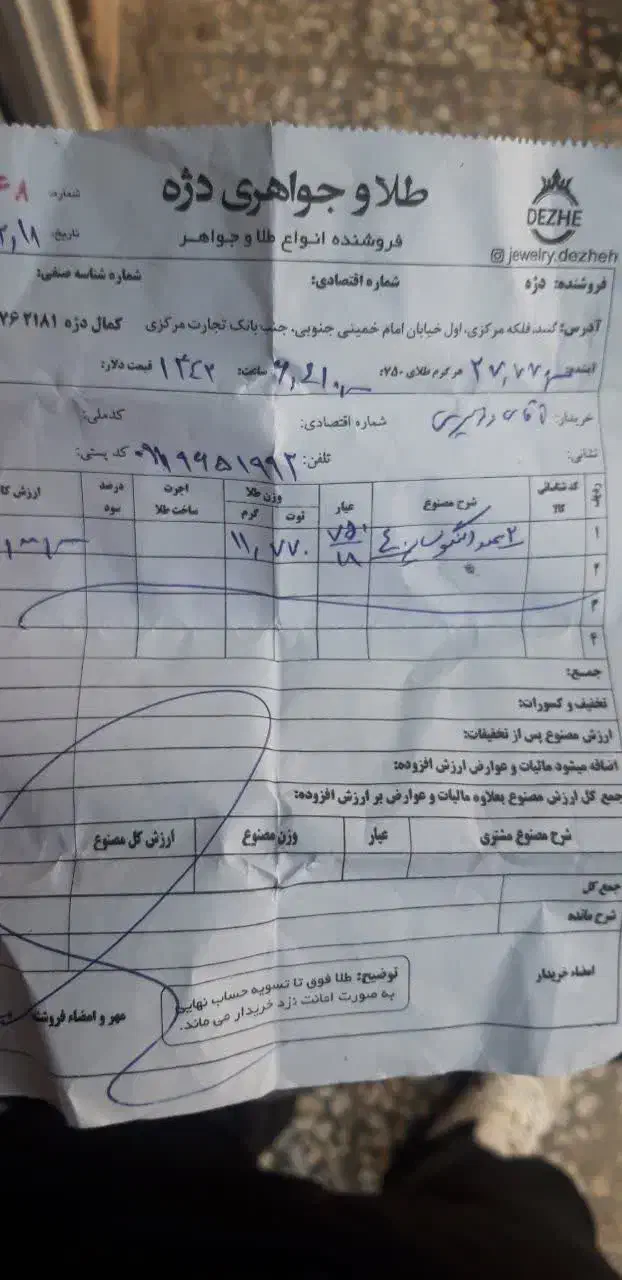 طلا و جواهری دژه
DEZHE
شماره:
فروشنده انواع طلا و جواهر
تاریخ:
jewelry.dezheh
فروشنده: دژه
شماره اقتصادی:
شماره شناسه صنفی:
آدرس: گنبد، فلکه مرکزی، اول خیابان امام خمینی جنوبی، جنب بانک تجارت مرکزی کمال دژه
هر گرم طلای ۷۵۰:
ساعت: ۱۴۴۲
قیمت دلار:
خریدار: آقای
شماره اقتصادی:
کدملی:
نشانی:
تلفن:
کد پستی:
ردیف
کد شناسائی کالا
شرح مصنوع
عیار
وزن طلا
سوت
گرم
اجرت ساخت طلا
درصد سود
ارزش کا
۱
۲ عدد النگو
۷۵۰
۱۸
۱۱,۷۷۰
۲
۳
۴
جمــع:
تخفیف و کسورات:
ارزش مصنوع پس از تخفیفات:
اضافه میشود مالیات و عوارض ارزش افزوده:
جمع کل ارزش مصنوع بعلاوه مالیات و عوارض بر ارزش افزوده:
شرح مصنوع مشتری
عیار
وزن مصنوع
ارزش کل مصنوع
جمع کل
شرح مانده
امضاء خریدار
توضیح: طلا فوق تا تسویه حساب نهایی
به صورت امانت نزد خریدار می ماند.
مهر و امضاء فروشنده